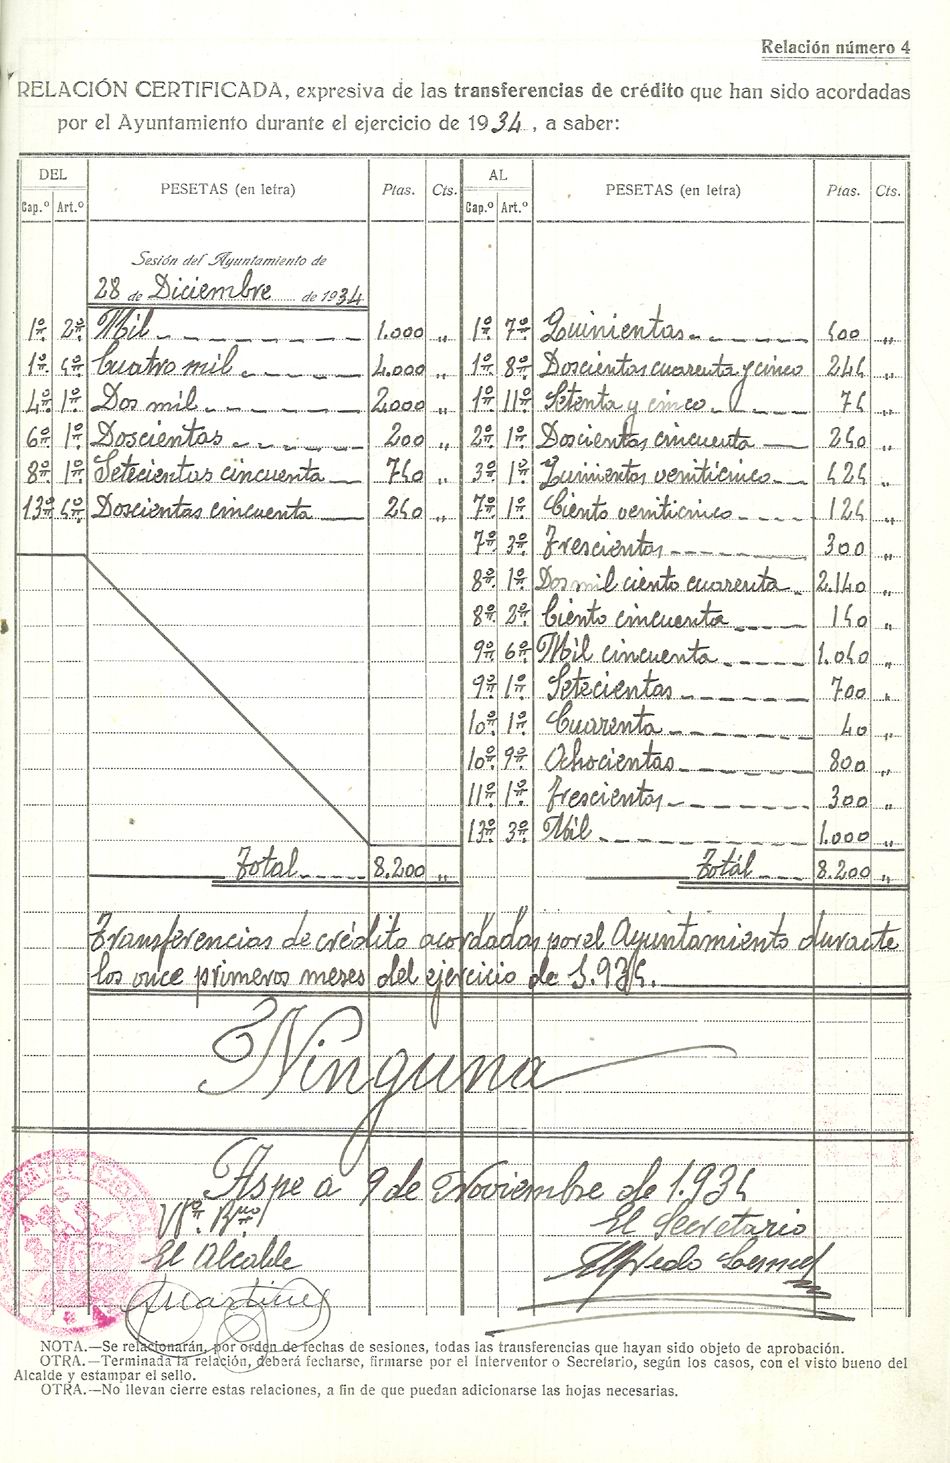 Relación número 4
RELACIÓN CERTIFICADA, expresiva de las transferencias de crédito que han sido acordadas
por el Ayuntamiento durante el ejercicio de 1934, a saber:
DEL PESETAS (en letra) Ptas. Cts. AL PESETAS (en letra) Ptas. Cts.
Cap.º Art.º Cap.º Art.º
Sesión del Ayuntamiento de
28 de Diciembre de 1934
1º 2º Mil 1.000 „ 1º 7º Quinientas 500 „
1º 5º Cuatro mil 4.000 „ 1º 8º Doscientas cuarenta y cinco 245 „
4º 1º Dos mil 2.000 „ 1º 11º Setenta y cinco 75 „
6º 1º Doscientas 200 „ 2º 1º Doscientas cincuenta 250 „
8º 1º Setecientas cincuenta 750 „ 3º 1º Quinientas veniticinco 525 „
13º 5º Doscientas cincuenta 250 „ 7º 1º Ciento veniticinco 125 „
7º 3º Trescientas 300 „
8º 1º Dos mil ciento cuarenta 2.140 „
8º 2º Ciento cincuenta 150 „
9º 6º Mil cincuenta 1.050 „
9º 1º Setecientas 700 „
10º 1º Cuarenta 40 „
10º 9º Ochocientas 800 „
11º 1º Trescientas 300 „
13º 3º Mil 1.000 „
Total 8.200 „ Totál 8.200 „
Transferencias de crédito acordadas por el Ayuntamiento durante
los once primeros meses del ejercicio de 1.935.
Ninguna
Aspe a 9 de Noviembre de 1.935
Vº. Bno El Secretario
El Alcalde Alfredo
NOTA.—Se relacionarán, por orden de fechas de sesiones, todas las transferencias que hayan sido objeto de aprobación.
OTRA.—Terminada la relación, deberá fecharse, firmarse por el Interventor o Secretario, según los casos, con el visto bueno del
Alcalde y estampar el sello.
OTRA.—No llevan cierre estas relaciones, a fin de que puedan adicionarse las hojas necesarias.